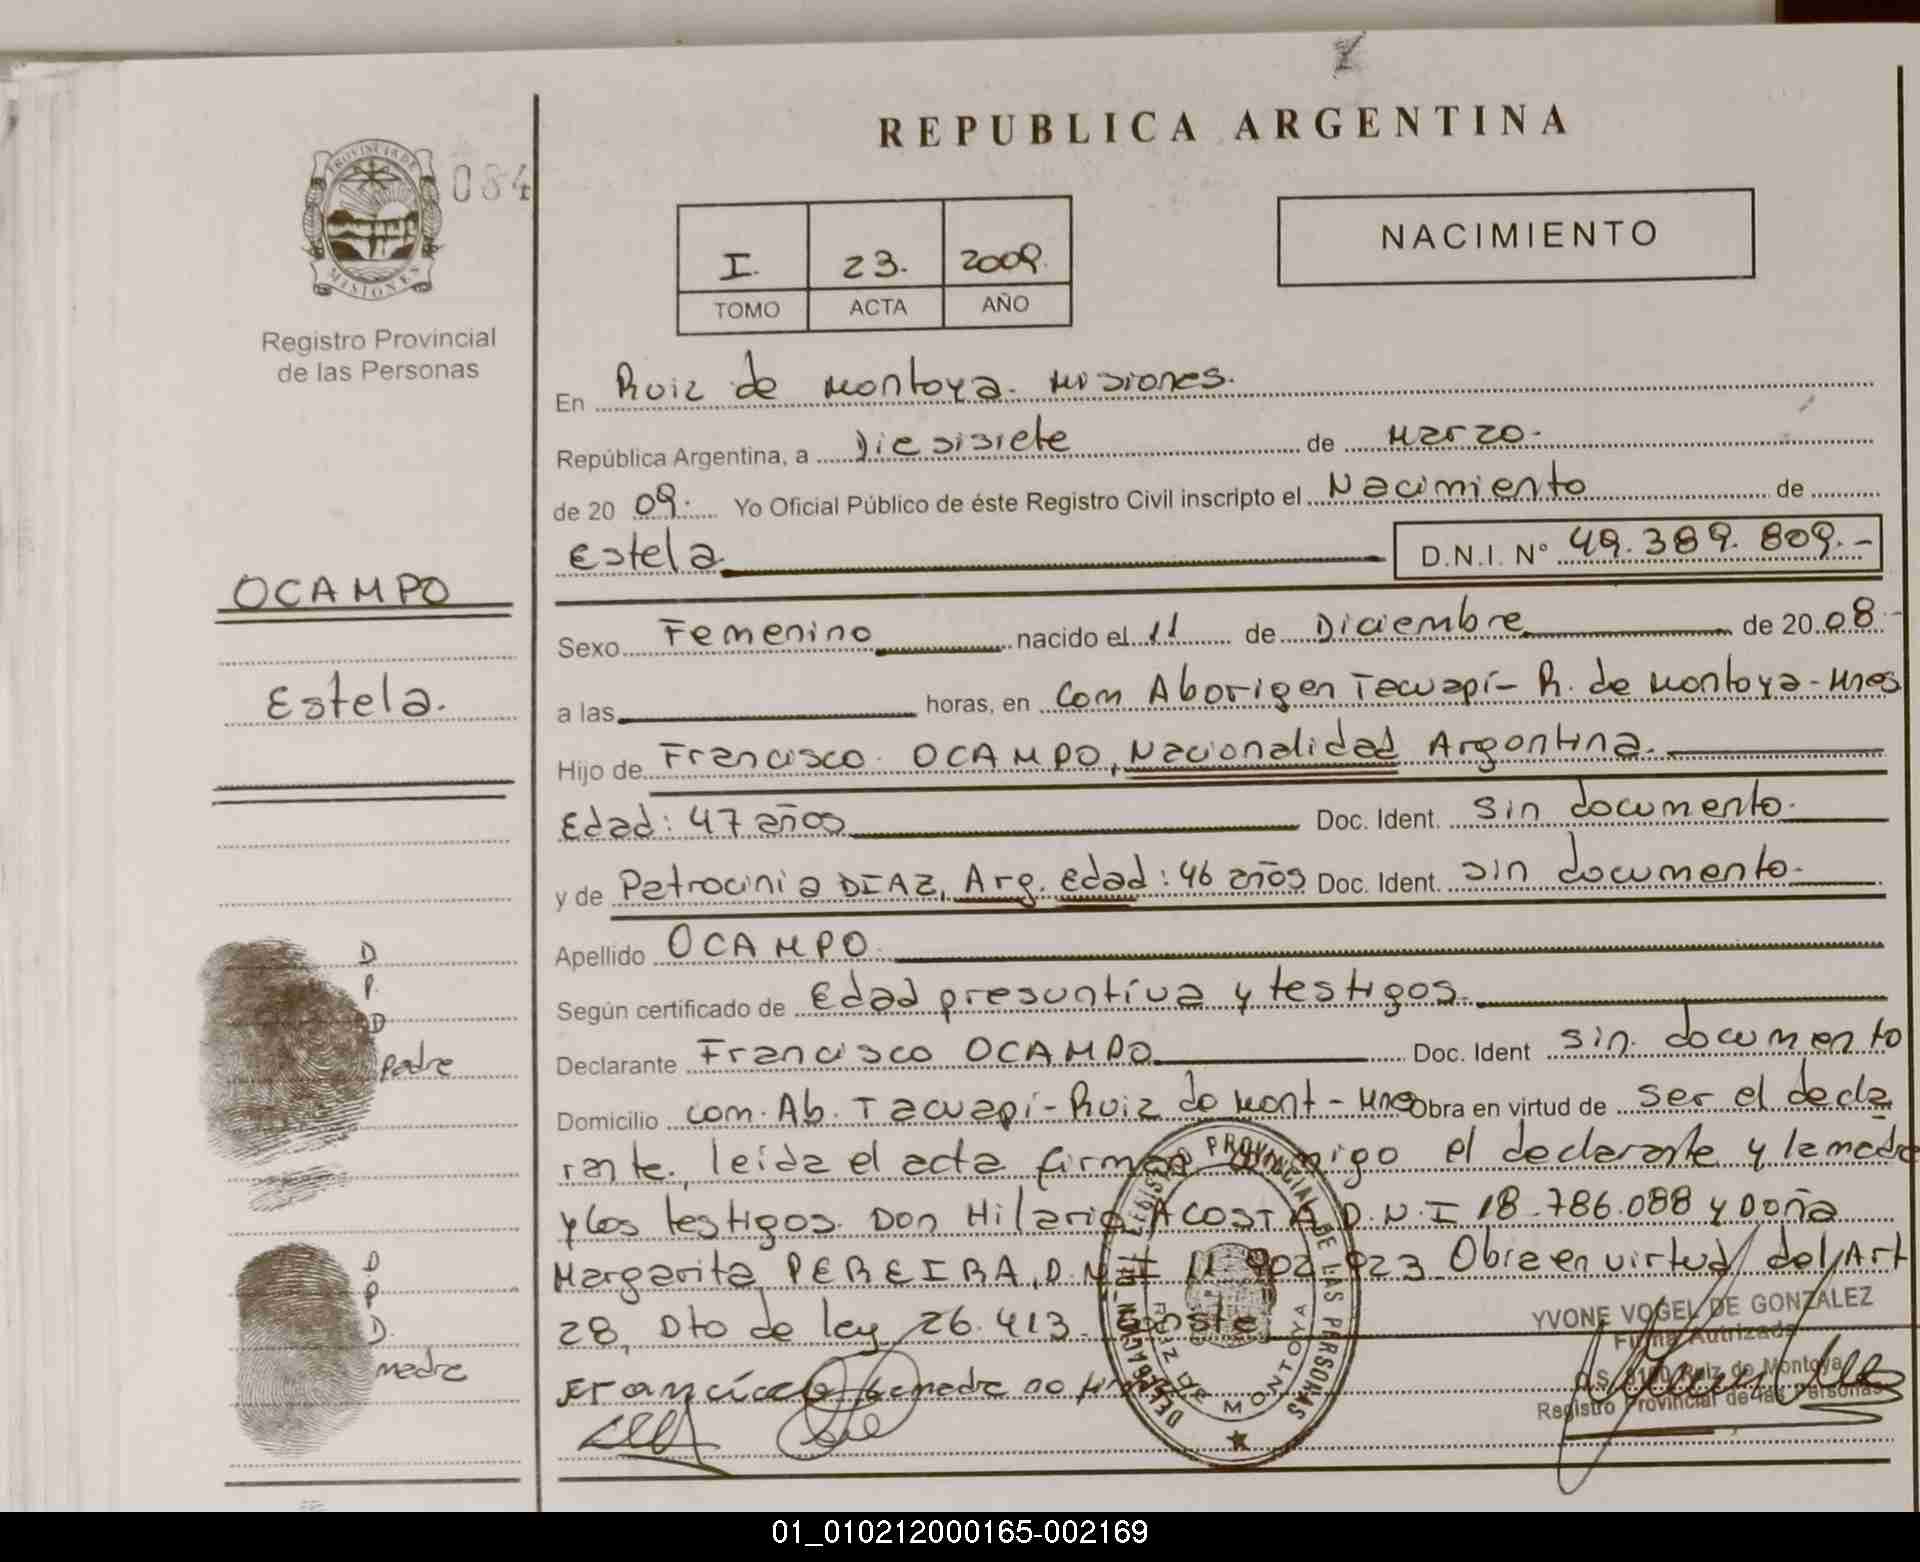 PROVINCIA DE MISIONES
084
Registro Provincial
de las Personas
OCAMPO
Estela.
D
P.
D
padre
D
P
D.
madre
REPUBLICA ARGENTINA
I. 23. 2009.
TOMO ACTA AÑO
NACIMIENTO
En Ruiz de Montoya. Misiones.
República Argentina, a Diesisiete de Marzo.
de 20 09. Yo Oficial Público de éste Registro Civil inscripto el Nacimiento de
Estela D.N.I. N° 49.389.809.-
Sexo Femenino nacido el 11 de Diciembre de 20 08.-
a las horas, en Com Aborigen Tacuapí- R. de Montoya-Mnes
Hijo de Francisco OCAMPO, Nacionalidad Argentina.
Edad: 47 años Doc. Ident. sin documento.
y de Patrocinia DIAZ, Arg. edad: 46 años Doc. Ident. sin documento.
Apellido OCAMPO.
Según certificado de Edad presuntíva y testigos.
Declarante Francisco OCAMPO Doc. Ident sin documento
Domicilio com. Ab. Tacuapí-Ruiz de Mont-Mnes Obra en virtud de ser el decla
rante, leída el acta firman conmigo el declarante y la madre
y los testigos. Don Hilario ACOSTA D.N.I 18.786.088 y Doña
Margarita PEREIRA, D.N.I 11.902.923 Obra en virtud del Art
28, Dto de ley 26.413. Conste
Francisco la madre no
DELEGACION REGISTRO PROVINCIAL DE LAS PERSONAS
RUIZ DE MONTOYA
YVONE VOGEL DE GONZALEZ
Firma Autrizada
Ruiz de Montoya
Registro Provincial de las Personas
01_010212000165-002169